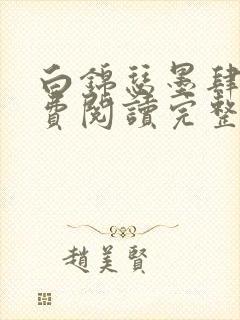 白錦瑟墨肆
費閱讀完整
趙美賢